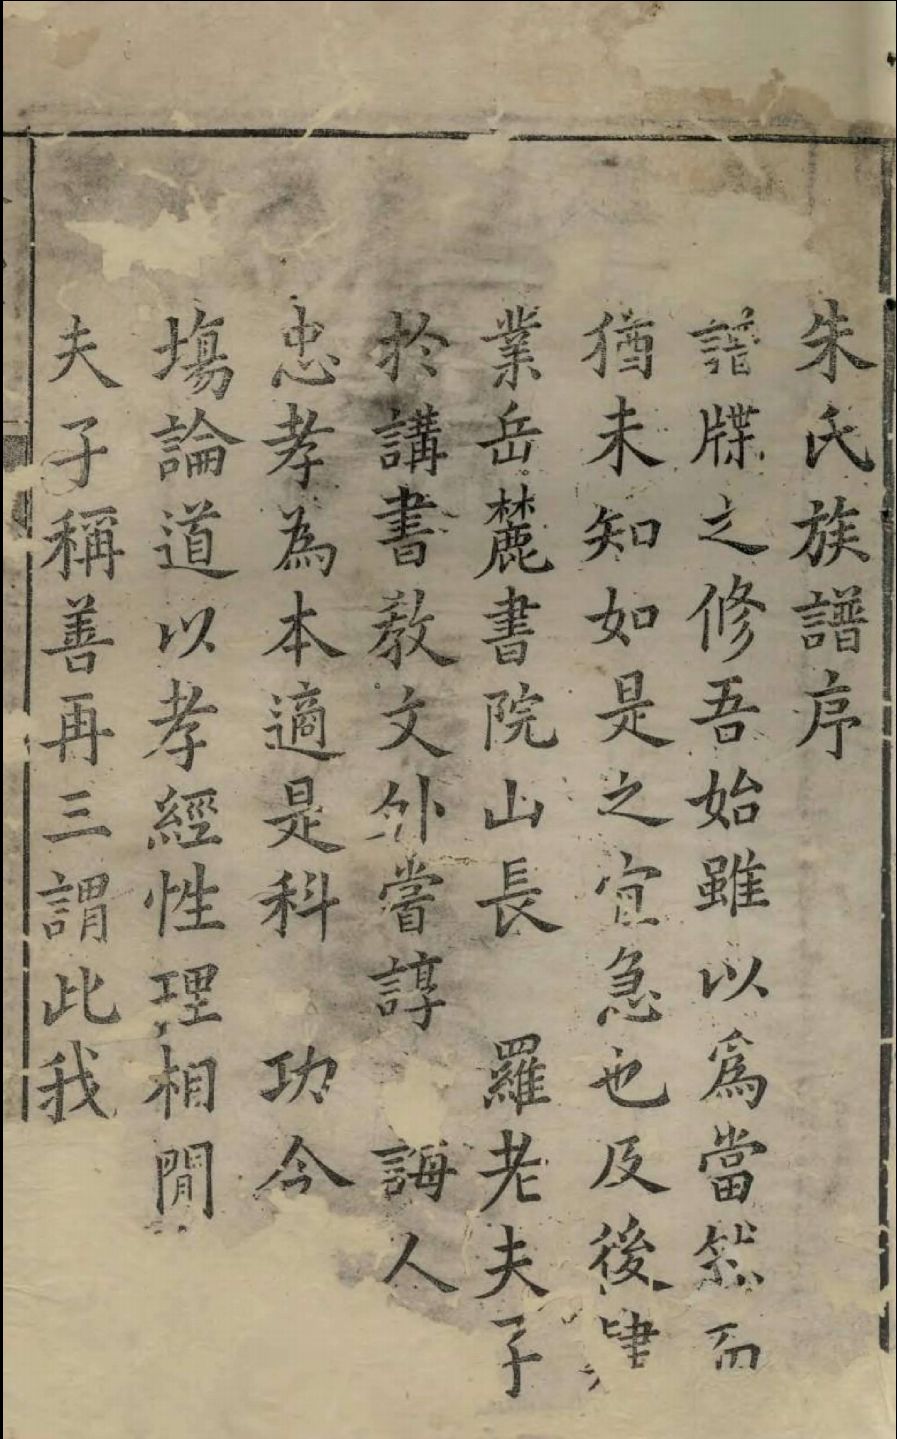 朱氏族譜序
譜牒之修吾始雖以爲當然而
猶未知如是之宜急也及後肄
業岳麓書院山長 羅老夫子
於講書敎文外嘗諄 誨人
忠孝為本適是科 功令
塲論道以孝經性理相間
夫子稱善再三謂此我